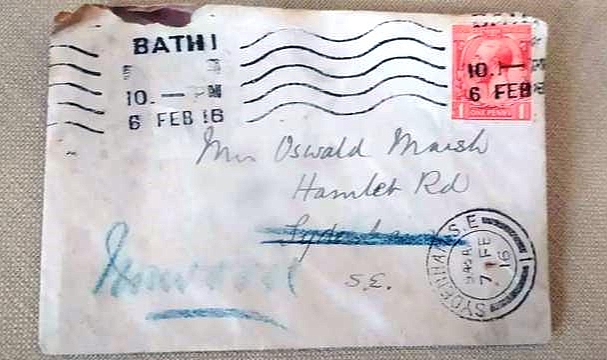 BATH 1
10. — PM
6 FEB 16
10. —
6 FEB
ONE PENNY
Mrs Oswald Marsh
Hamlet Rd
Sydenham
S.E.
SYDENHAM S.E.
7 FE
16